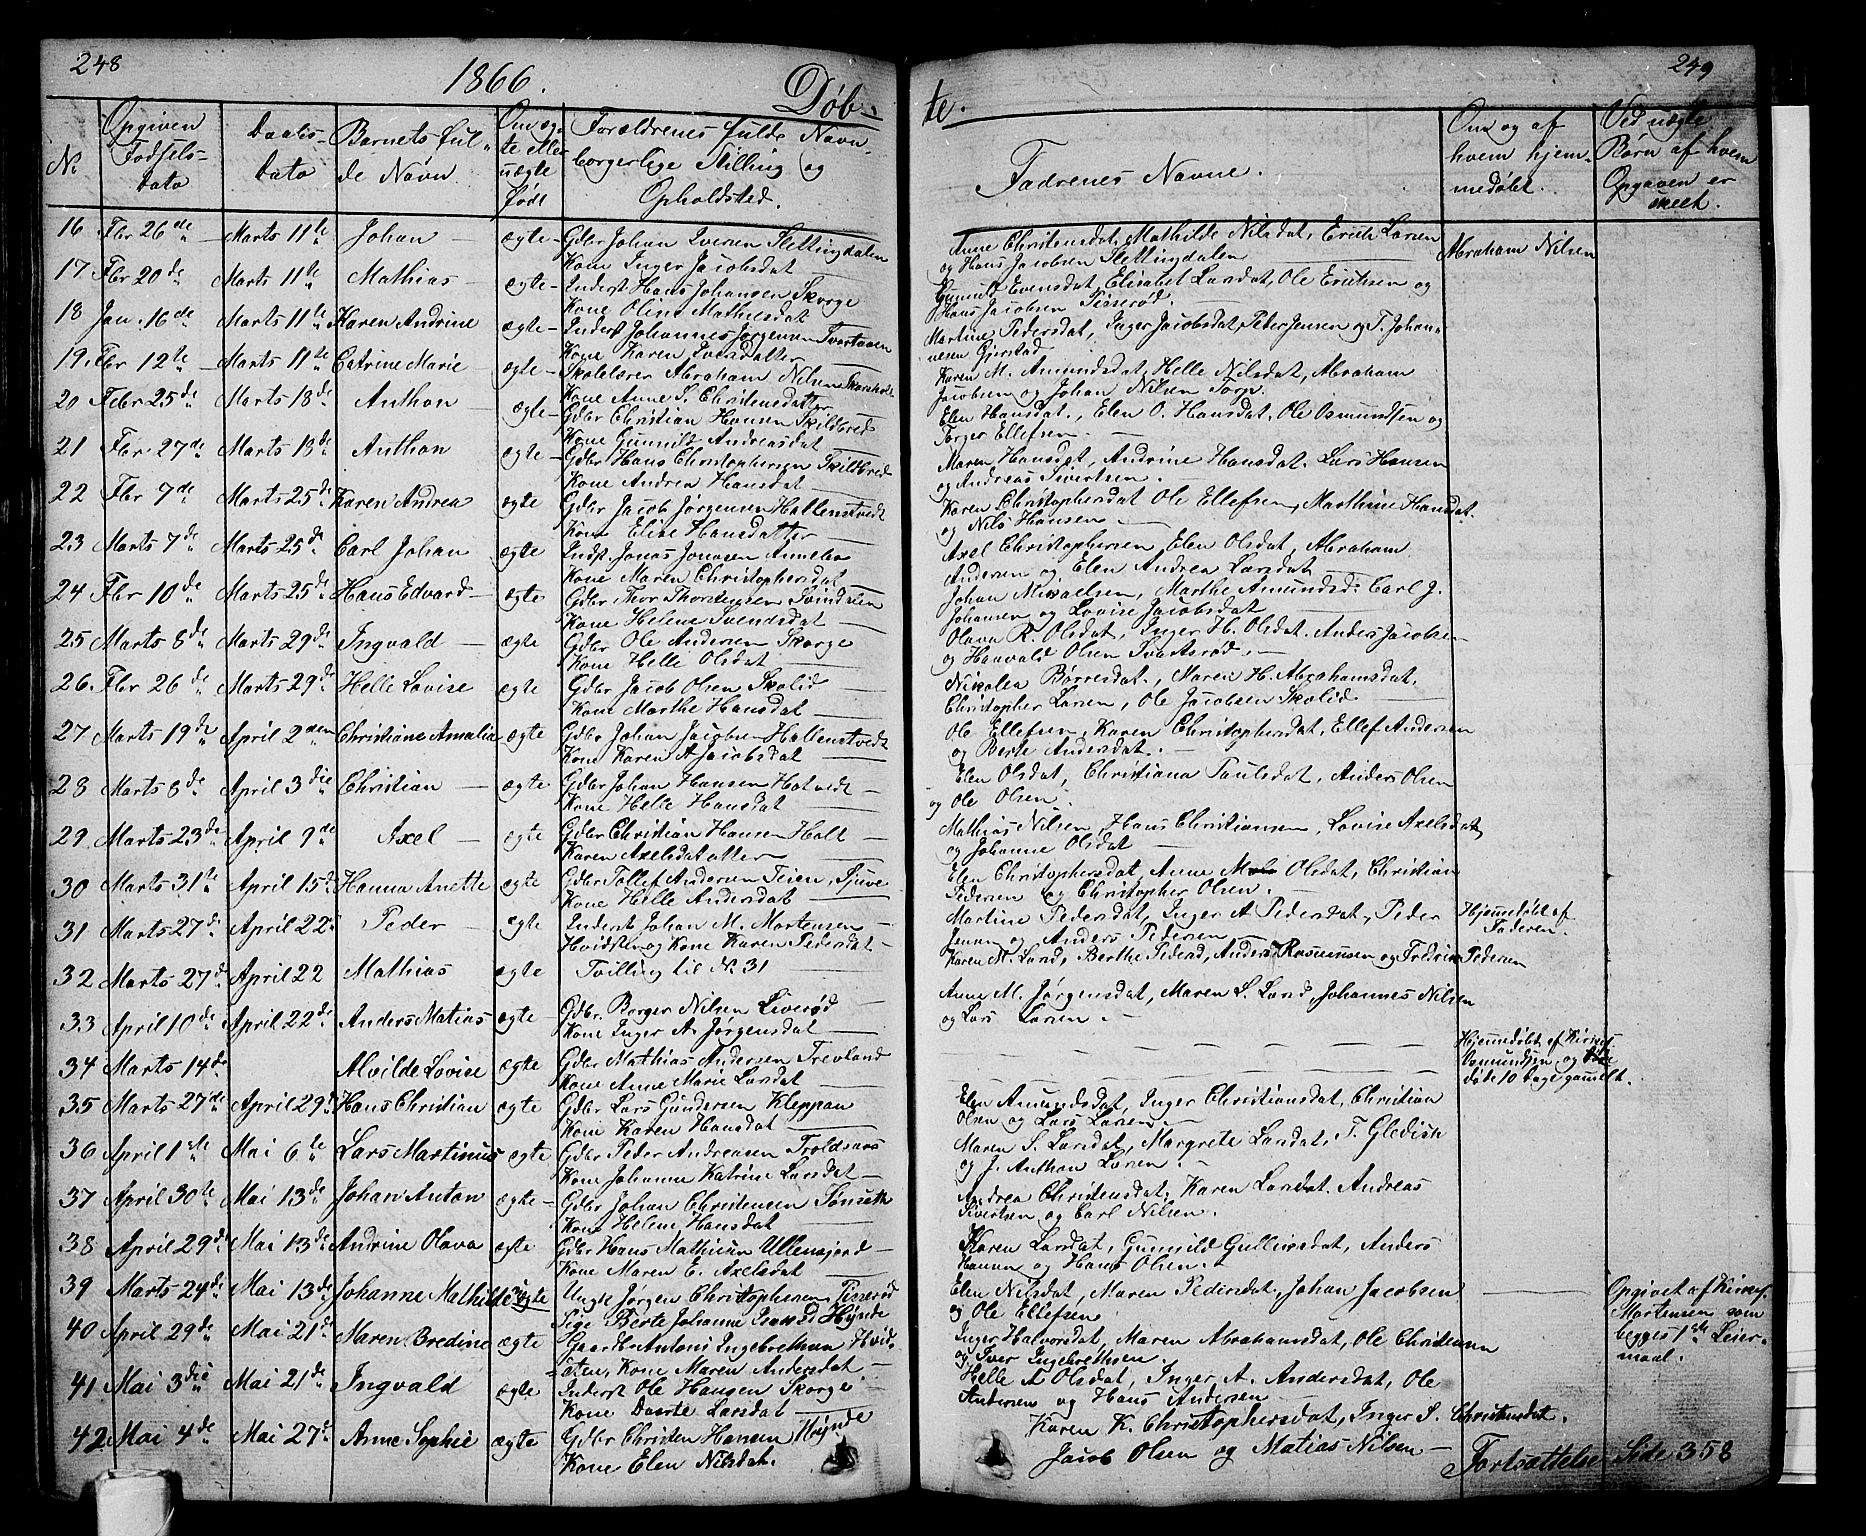 248
1866.
Døb-
te.
249
No
Opgiven Fødsels-dato
Daabs-dato
Barnets ful-de Navn.
Om æg-te eller uægte født
Forældrenes fulde Navn borgerlige Stilling og Opholdsted.
Fadrenes Navne.
Om og af hvem hjem-medøbt.
Ved uægte Børn af hvem Opgaven er skeet.
16 Fbr 26de Marts 11te Johan ægte Gdbr Johan Iversen Slettingdalen
Kone Inger Jacobsdat
Anne Christensdat, Mathilde Nilsdat, Erich Larsen
og Hans Jacobsen Slettingdalen
Abraham Nilsen
17 Fbr 20de Marts 11te Mathias ægte Inderst Hans Johansen Skorge
Kone Oline Mathisdat
Gunnild Evensdat, Elisabet Larsdat, Ole Erichsen og
Hans Jacobsen Tisserød.
18 Jan. 16de Marts 11te Karen Andrine ægte Inderst Johannes Jørgensen
Kone Karen Iversdatter
Martine Pedersdat, Inger Jacobsdat, Peder Jensen og T. Johan-
nesen Gjerstad
19 Fbr 12te Marts 11te Catrine Marie ægte Skolelærer Abraham Nilsen
Kone Anne S. Christensdatter
Karen M. Amundsdat, Helle Nilsdat, Abraham
Jacobsen og Johan Nilsen Torp.
20 Febr 25de Marts 18de Anthon ægte Gdbr Christian Hansen Skilbred
Kone Gunnild Andreasdat
Elen Hansdat, Elen O. Hansdat. Ole Osmundsen og
Torger Ellefsen
21 Fbr 27de Marts 18de Anthon ægte Gdbr Hans Christophersen Skilbred
Kone Andrea Hansdat
Maren Hansdat, Andrine Hansdat. Lars Hansen
og Andreas Sivertsen
22 Fbr 7de Marts 25de Karen Andrea ægte Gdbr Jacob Jørgensen Hallenstvedt
Kone Elise Hansdatter
Karen Christophersdat Ole Ellefsen, Marthine Hansdat.
og Nils Hansen
23 Marts 7de Marts 25de Carl Johan ægte Indst. Jonas Jonasen
Kone Maren Christophersdat
Axel Christophersen Elen Olsdat, Abraham
Andersen og Elen Andrea Larsdat
24 Fbr 10de Marts 25de Hans Edvard ægte Gdbr Thor Thorstensen Svindalen
Kone Helene Svendsdat
Johan Mikaelsen, Marthe Amundsd. Carl J.
Johansen og Lovise Jacobsdat
25 Marts 8de Marts 29de Ingvald ægte Gdbr Ole Andersen Skorge
Kone Helle Olsdat
Olava R. Olsdat, Inger H. Olsdat. Anders Jacobsen
og Hanvald Olsen Svartsrød.
26. Fbr 26de Marts 29de Helle Lovise ægte Gdbr Jacob Olsen Skolid
Kone Marthe Hansdat
Nikolea Børresdat, Maren H. Abrahamsdat.
Christopher Larsen, Ole Jacobsen Skolid
27 Marts 19de April 2den Christiane Amalia ægte Gdbr Johan Jacobsen Hallenstvedt
Kone Karen A Jacobsdat
Ole Ellefsen, Karen Christophersdat, Ellef Andersen
og Berte Andersdat.
28 Marts 8de April 3die Christian ægte Gdbr Johan Hansen Hotvedt
Kone Helle Hansdat
Elen Olsdat, Christiana Paulsdat, Anders Olsen
og Ole Olsen.
29 Marts 23de April 9de Axel ægte Gdbr Christian Hansen Holt
Karen Axelsdatter
Mathias Nilsen, Hans Christiansen, Lovise Axelsdat
og Johanne Olsdat
30 Marts 31te April 15de Hanna Anette ægte Gdbr Tollef Andersen Teien, Tjuve
Kone Helle Andersdat
Elen Christophersdat, Anne Olsdat, Christian
Pedersen og Christopher Olsen.
31 Marts 27de April 22 Peder ægte Inderst Johan M. Mortensen
Hvidsten og Kone Karen Pedersdat
Martine Pedersdat, Inger A Pedersdat, Peder
Jensen og Anders Pedersen
Hjemmedøbt af Faderen.
32 Marts 27de April 22 Mathias ægte Tvilling til No. 31
Karen M. Larsd, Berthe Pedersd, Anders Rasmussen og Fredrik Pedersen
33 April 10de April 22de Anders Matias ægte Gdbr. Borger Nilsen Liverød
Kone Inger A. Jørgensdat
Anne M. Jørgensdat, Maren S. Larsd, Johannes Nilsen
og Lars Larsen.
34 Marts 14de Alvilde Lovise ægte Gdbr Mathias Andersen Trevland
Kone Anne Marie Larsdat
Hjemmedøbt af Kirkes.
Osmundsen og
døde 10 Dage gammelt.
35 Marts 27de April 29de Hans Christian ægte Gdbr Lars Gundersen Kleppan
Kone Karen Hansdat
Elen Amundsdat, Inger Christiansdat, Christian
Olsen og Lars Larsen
36 April 1ste Mai 6te Lars Martinus ægte Gdbr Peder Andreasen Troldsaas
Kone Johanne Katrine Larsdat
Maren S. Larsdat, Margrete Larsdat, T. Gledish
og J. Anthon Larsen.
37 April 30te Mai 13de Johan Anton ægte Gdbr Johan Christensen Sønseth
Kone Helene Hansdat
Andrea Christensdat, Karen Larsdat. Andreas
Sivertsen og Carl Nilsen.
38 April 29de Mai 13de Andrine Olava ægte Gdbr Hans Mathisen Ullensjord
Kone Maren E. Axelsdat
Karen Larsdat, Gunnild Gulliksdat, Anders
Hansen og Hans Olsen.
39 Marts 24de Mai 13de Johanne Mathilde uægte Ungk Jørgen Christophersen Tisserød
Pige Berte Johanne Høynde
Elen Nilsdat, Maren Pedersdat, Johan Jacobsen
og Ole Ellefsen
Opgivet af Kirkes.
Mortensen som
begges 1ste Leier-
maal.
40 April 29de Mai 21de Maren Bredine ægte Gaardbr Antoni Ingebrethsen Hvid-
sten, Kone Maren Andersdat.
Inger Halvorsdat, Maren Abrahamsdat, Ole Christiansen
og Iver Ingebrethsen.
41 Mai 3die Mai 21de Ingvald ægte Inderst Ole Hansen Skorge
Kone Daarte Larsdat
Helle A Olsdat, Inger A. Andersdat, Ole
Andersen og Hans Andersen
42 Mai 4de Mai 27de Anne Sophie ægte Gdbr Christen Hansen Høynde
Kone Elen Nilsdat.
Karen K. Christophersdat, Inger S. Christensdat.
Jacob Olsen og Matias Nilsen
Fortsættelse Side 358